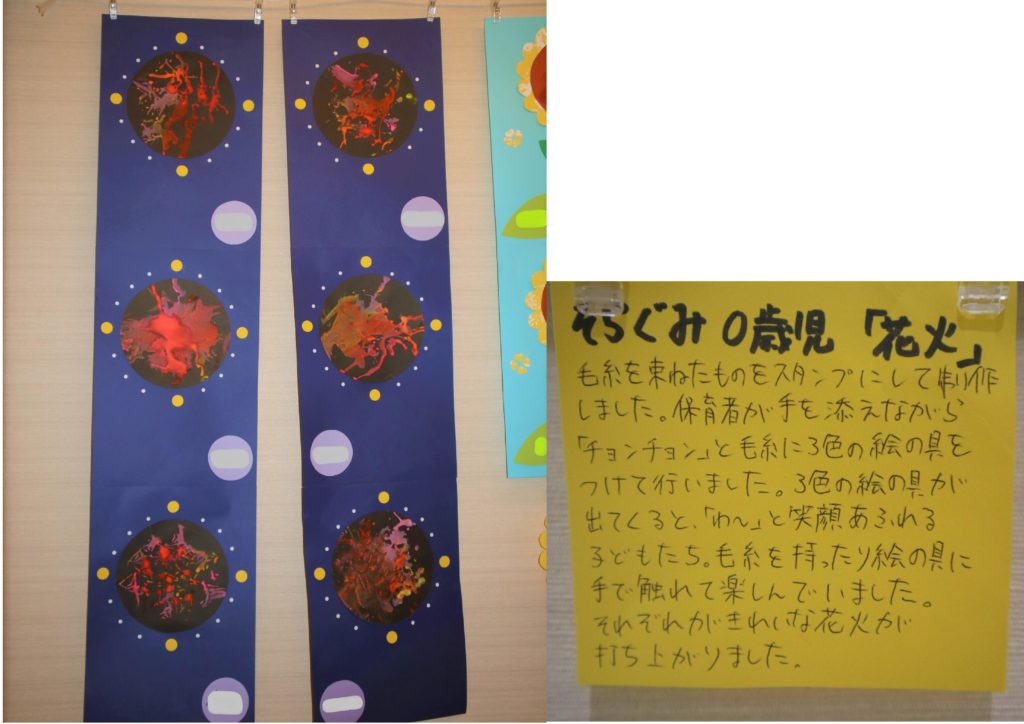 そらぐみ 0歳児 「花火」
毛糸を束ねたものをスタンプにして制作
しました。保育者が手を添えながら
「チョンチョン」と毛糸に3色の絵の具を
つけて行いました。3色の絵の具が
出てくると、「わ〜」と笑顔あふれる
子どもたち。毛糸を持ったり絵の具に
手で触れて楽しんでいました。
それぞれがきれいな花火が
打ち上がりました。